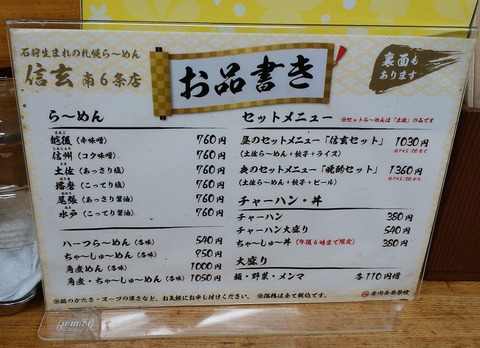 石狩生まれの札幌ら〜めん
信玄 南6条店
お品書き
裏面も
あります
ら〜めん
越後(辛味噌) 760円
信州(コク味噌) 760円
土佐(あっさり塩) 760円
播磨(こってり塩) 760円
尾張(あっさり醤油) 760円
水戸(こってり醤油) 760円
ハーフら〜めん(各味) 540円
ちゃ〜しゅ〜めん(各味) 750円
角煮めん(各味) 1000円
角煮・ちゃ〜しゅ〜めん(各味) 1050円
セットメニュー ※セットら〜めんは「土佐」のみです
昼のセットメニュー「信玄セット」 1030円
(土佐ら〜めん+餃子+ライス) ※PM5:00まで
夜のセットメニュー「晩酌セット」 1360円
(土佐ら〜めん+餃子+ビール) ※PM5:00から
チャーハン・丼
チャーハン 380円
チャーハン大盛り 540円
ちゃ〜しゅ〜丼(午後6時まで限定) 380円
大盛り
麺・野菜・メンマ 各110円増
※麺のかたさ・スープの濃さなど、お気軽にお申し付けください。 ※価格は全て税込です。